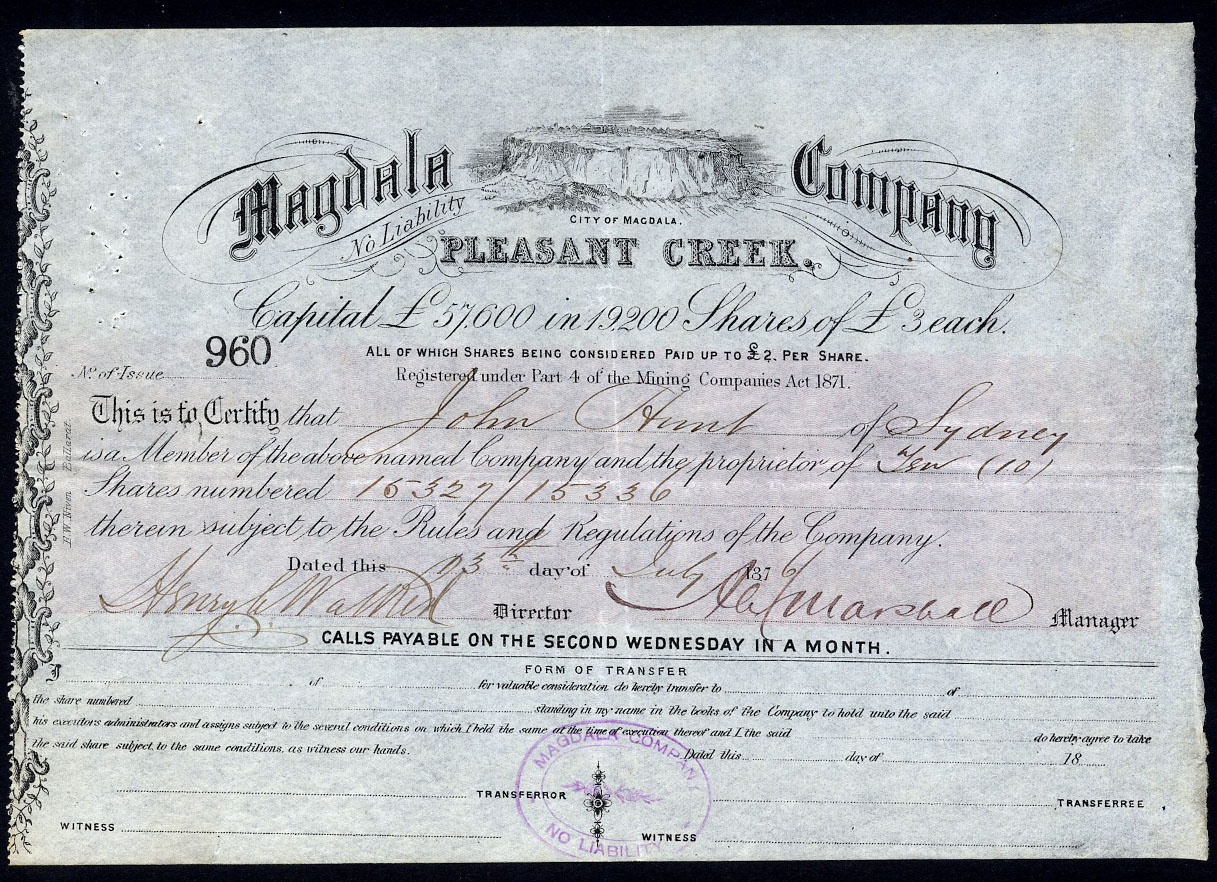 Magdala Company
No Liability
CITY OF MAGDALA.
PLEASANT CREEK.
Capital £57,600 in 19,200 Shares of £3 each.
ALL OF WHICH SHARES BEING CONSIDERED PAID UP TO £2. PER SHARE.
960
No. of Issue
Registered under Part 4 of the Mining Companies Act 1871.
This is to Certify that John Hunt of Sydney
is a Member of the above named Company and the proprietor of Ten (10)
Shares numbered 15327/15336
therein subject to the Rules and Regulations of the Company.
Dated this 13th day of July 1876
Henry C Walker Director Marshall Manager
CALLS PAYABLE ON THE SECOND WEDNESDAY IN A MONTH.
FORM OF TRANSFER
I of for valuable consideration do hereby transfer to of
the share numbered standing in my name in the books of the Company to hold unto the said
his executors administrators and assigns subject to the several conditions on which I held the same at the time of execution thereof and I the said do hereby agree to take
the said share subject to the same conditions, as witness our hands. Dated this day of 18
TRANSFERROR TRANSFERREE
WITNESS WITNESS
MAGDALA COMPANY
NO LIABILITY
E.W. Niven Ballarat